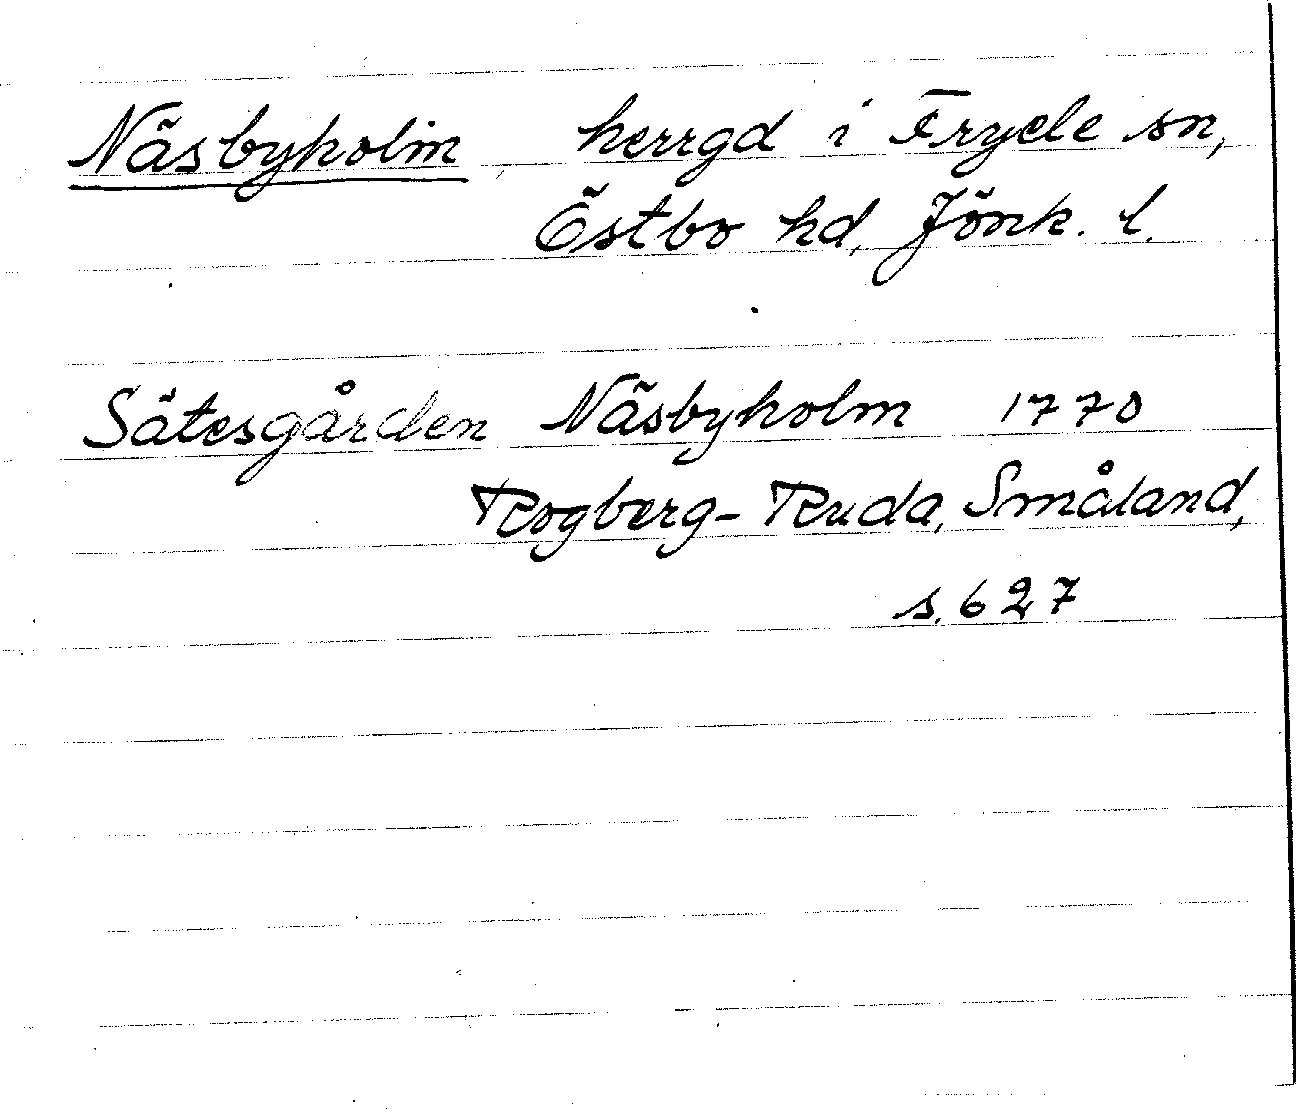 Näsbyholm, herrgd i Fryele sn,
Östbo hd, Jönk. l.
Sätesgården Näsbyholm 1770
Rogberg-Ruda, Småland,
s. 627